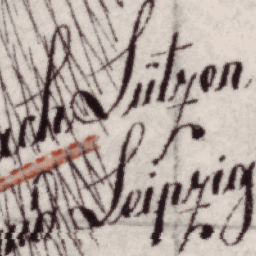 nach Lützen
und Leipzig